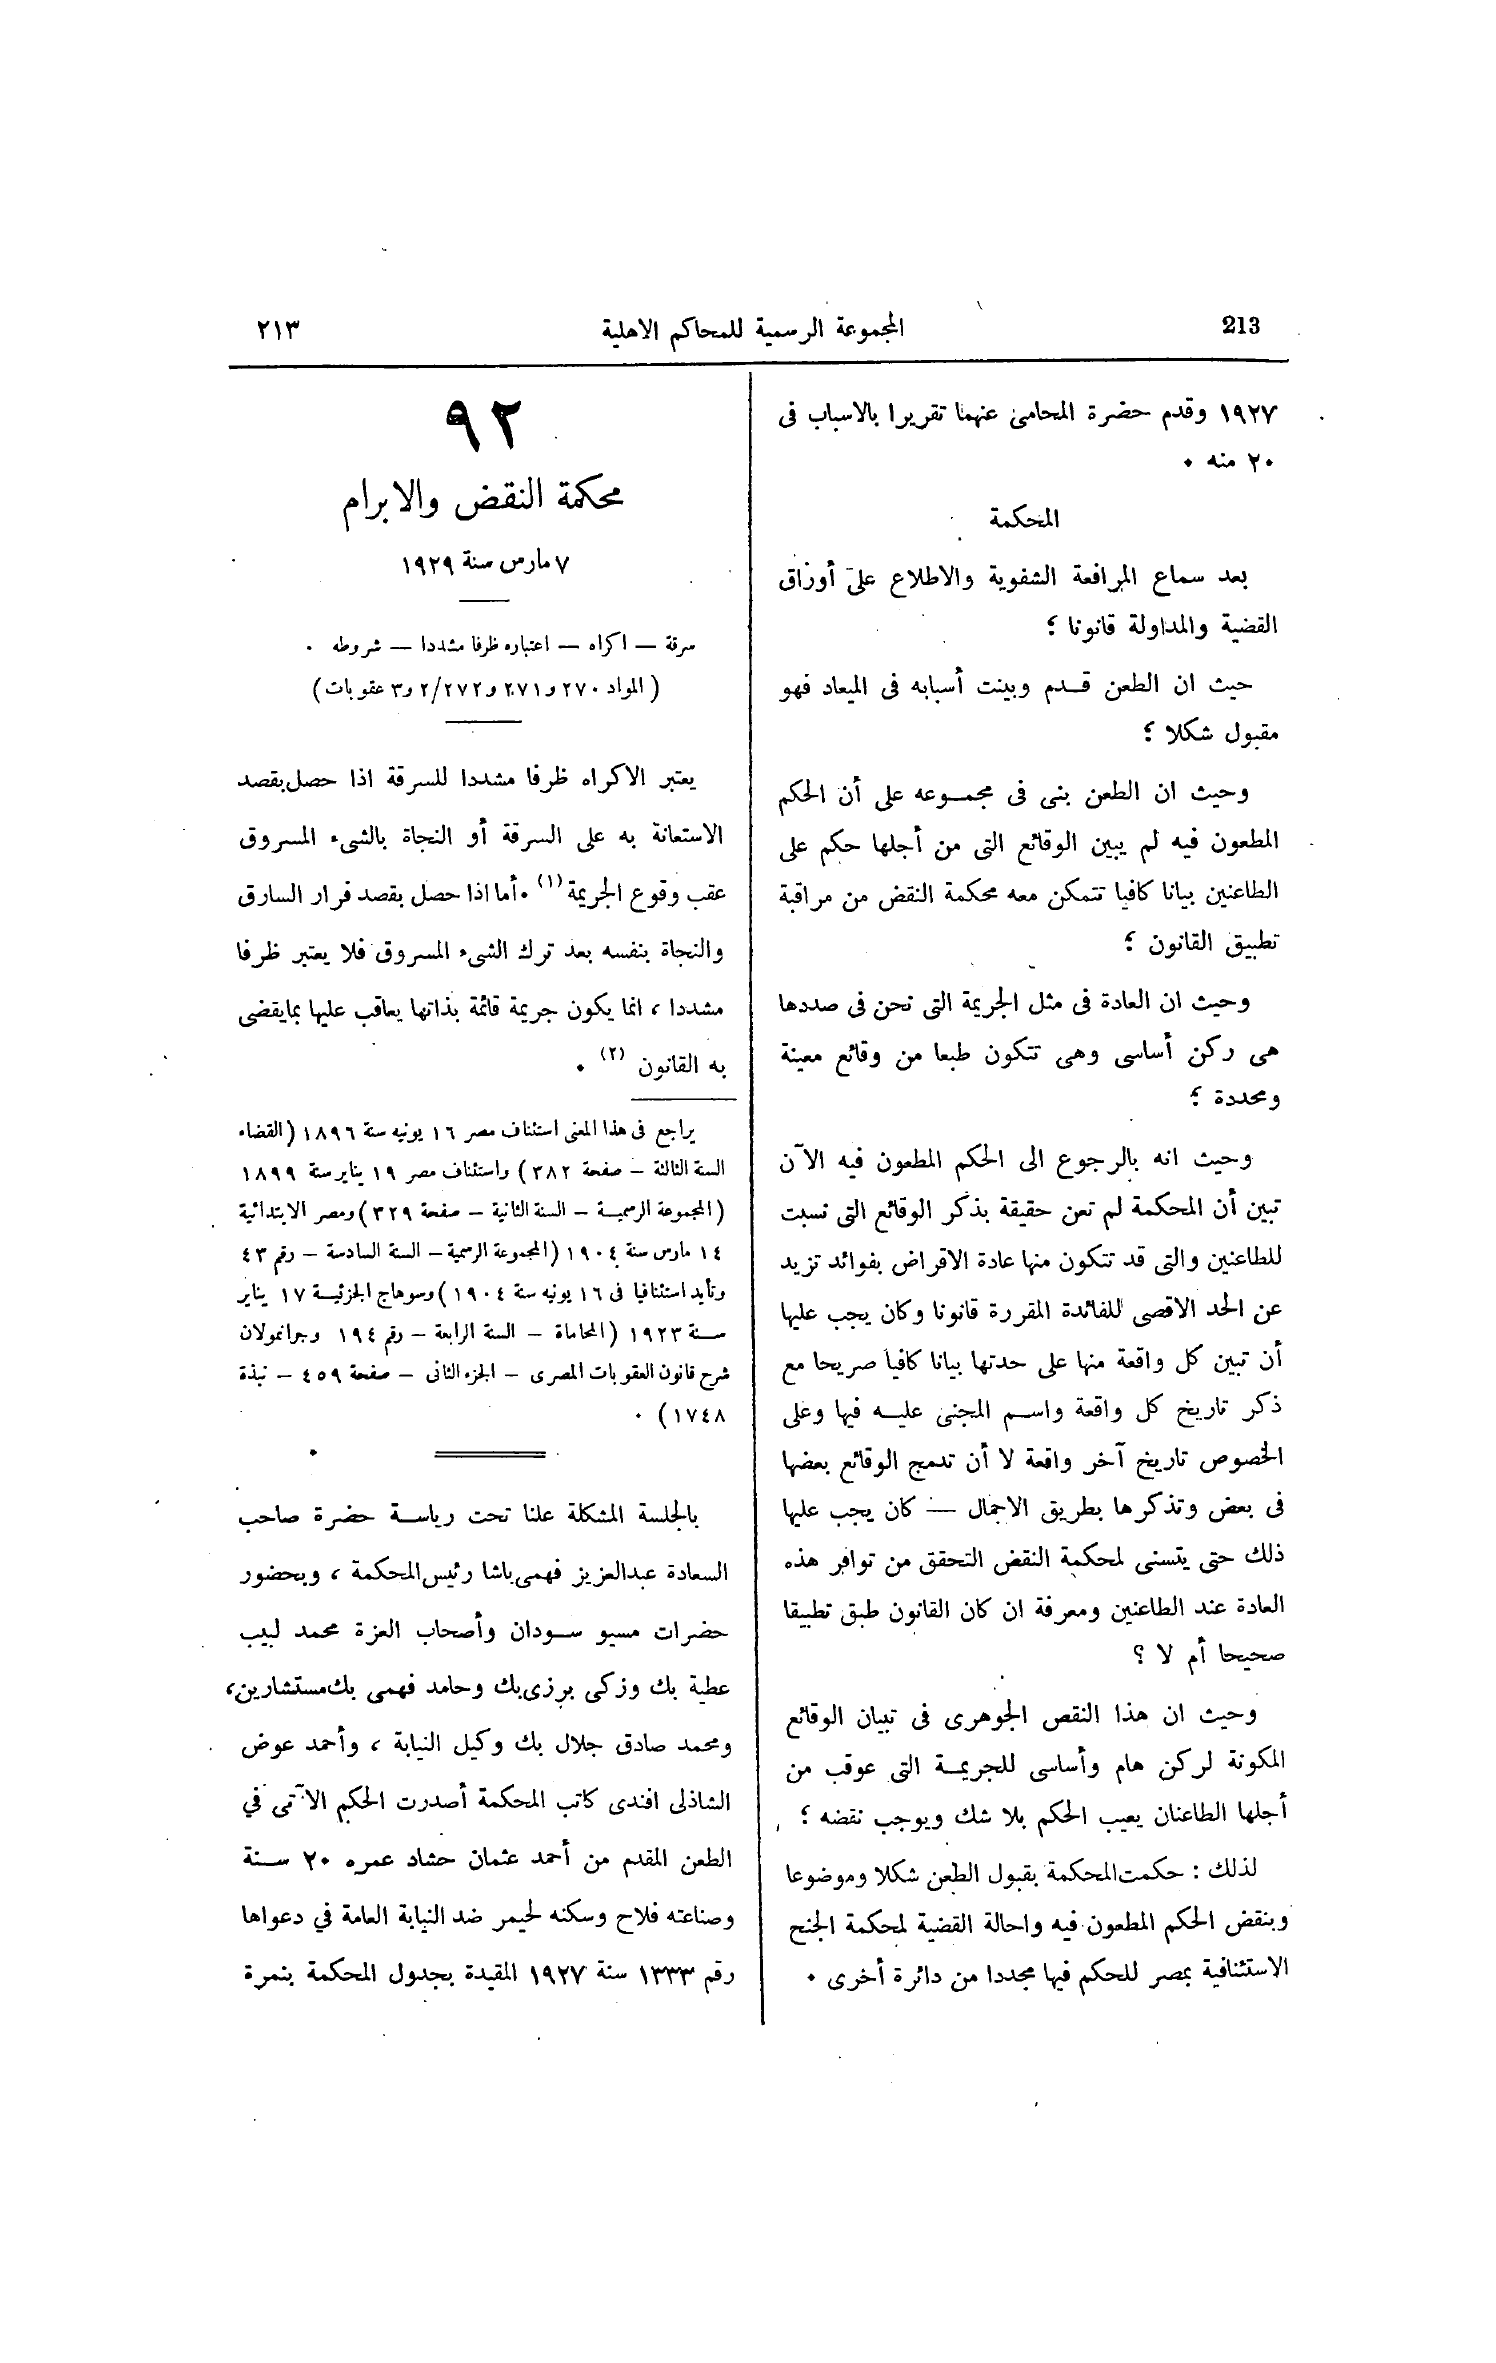 213
المجموعة الرسمية للمحاكم الاهلية
٢١٣
١٩٢٧ وقدم حضرة المحامى عنهما تقريرا بالاسباب فى
٢٠ منه ٠
المحكمة
بعد سماع المرافعة الشفوية والاطلاع على أوراق
القضية والمداولة قانونا ؛
حيث ان الطعن قدم وبينت أسبابه فى الميعاد فهو
مقبول شكلا ؛
وحيث ان الطعن بنى فى مجموعه على أن الحكم
المطعون فيه لم يبين الوقائع التى من أجلها حكم على
الطاعنين بيانا كافيا تتمكن معه محكمة النقض من مراقبة
تطبيق القانون ؛
وحيث ان العادة فى مثل الجريمة التى نحن فى صددها
هى ركن أساسى وهى تتكون طبعا من وقائع معينة
ومحددة ؛
وحيث انه بالرجوع الى الحكم المطعون فيه الآن
تبين أن المحكمة لم تعن حقيقة بذكر الوقائع التى نسبت
للطاعنين والتى قد تتكون منها عادة الاقراض بفوائد تزيد
عن الحد الاقصى للفائدة المقررة قانونا وكان يجب عليها
أن تبين كل واقعة منها على حدتها بيانا كافيا صريحا مع
ذكر تاريخ كل واقعة واسم المجنى عليه فيها وعلى
الخصوص تاريخ آخر واقعة لا أن تدمج الوقائع بعضها
فى بعض وتذكرها بطريق الاجمال — كان يجب عليها
ذلك حتى يتسنى لمحكمة النقض التحقق من توافر هذه
العادة عند الطاعنين ومعرفة ان كان القانون طبق تطبيقا
صحيحا أم لا ؟
وحيث ان هذا النقص الجوهرى فى تبيان الوقائع
المكونة لركن هام وأساسى للجريمة التى عوقب من
أجلها الطاعنان يعيب الحكم بلا شك ويوجب نقضه ؛
لذلك : حكمت المحكمة بقبول الطعن شكلا وموضوعا
وبنقض الحكم المطعون فيه واحالة القضية لمحكمة الجنح
الاستئنافية بمصر للحكم فيها مجددا من دائرة أخرى ٠
٩٢
محكمة النقض والابرام
٧ مارس سنة ١٩٢٩
سرقة — اكراه — اعتباره ظرفا مشددا — شروطه ٠
( المواد ٢٧٠ و٢٧١ و٢/٢٧٢ و٣ عقوبات )
يعتبر الاكراه ظرفا مشددا للسرقة اذا حصل بقصد
الاستعانة به على السرقة أو النجاة بالشىء المسروق
عقب وقوع الجريمة (١) ٠ أما اذا حصل بقصد فرار السارق
والنجاة بنفسه بعد ترك الشىء المسروق فلا يعتبر ظرفا
مشددا ، انما يكون جريمة قائمة بذاتها يعاقب عليها بما يقضى
به القانون (٢) ٠
يراجع فى هذا المعنى استئناف مصر ١٦ يونيه سنة ١٨٩٦ (القضاء
السنة الثالثة – صفحة ٣٨٢) واستئناف مصر ١٩ يناير سنة ١٨٩٩
(المجموعة الرسمية – السنة الثانية – صفحة ٣٢٩) ومصر الابتدائية
١٤ مارس سنة ١٩٠٤ (المجموعة الرسمية – السنة السادسة – رقم ٤٣
وتأيد استئنافيا فى ١٦ يونيه سنة ١٩٠٤) وسوهاج الجزئية ١٧ يناير
سنة ١٩٢٣ (المحاماة – السنة الرابعة – رقم ١٩٤ وجرانمولان
شرح قانون العقوبات المصرى – الجزء الثانى – صفحة ٤٥٩ – نبذة
١٧٤٨) ٠
بالجلسة المشكلة علنا تحت رياسة حضرة صاحب
السعادة عبدالعزيز فهمى باشا رئيس المحكمة ، وبحضور
حضرات مسيو سودان وأصحاب العزة محمد لبيب
عطية بك وزكى برزى بك وحامد فهمى بك مستشارين،
ومحمد صادق جلال بك وكيل النيابة ، وأحمد عوض
الشاذلى افندى كاتب المحكمة أصدرت الحكم الآتى في
الطعن المقدم من أحمد عثمان حشاد عمره ٢٠ سنة
وصناعته فلاح وسكنه لحيمر ضد النيابة العامة في دعواها
رقم ١٣٣٣ سنة ١٩٢٧ المقيدة بجدول المحكمة بنمرة